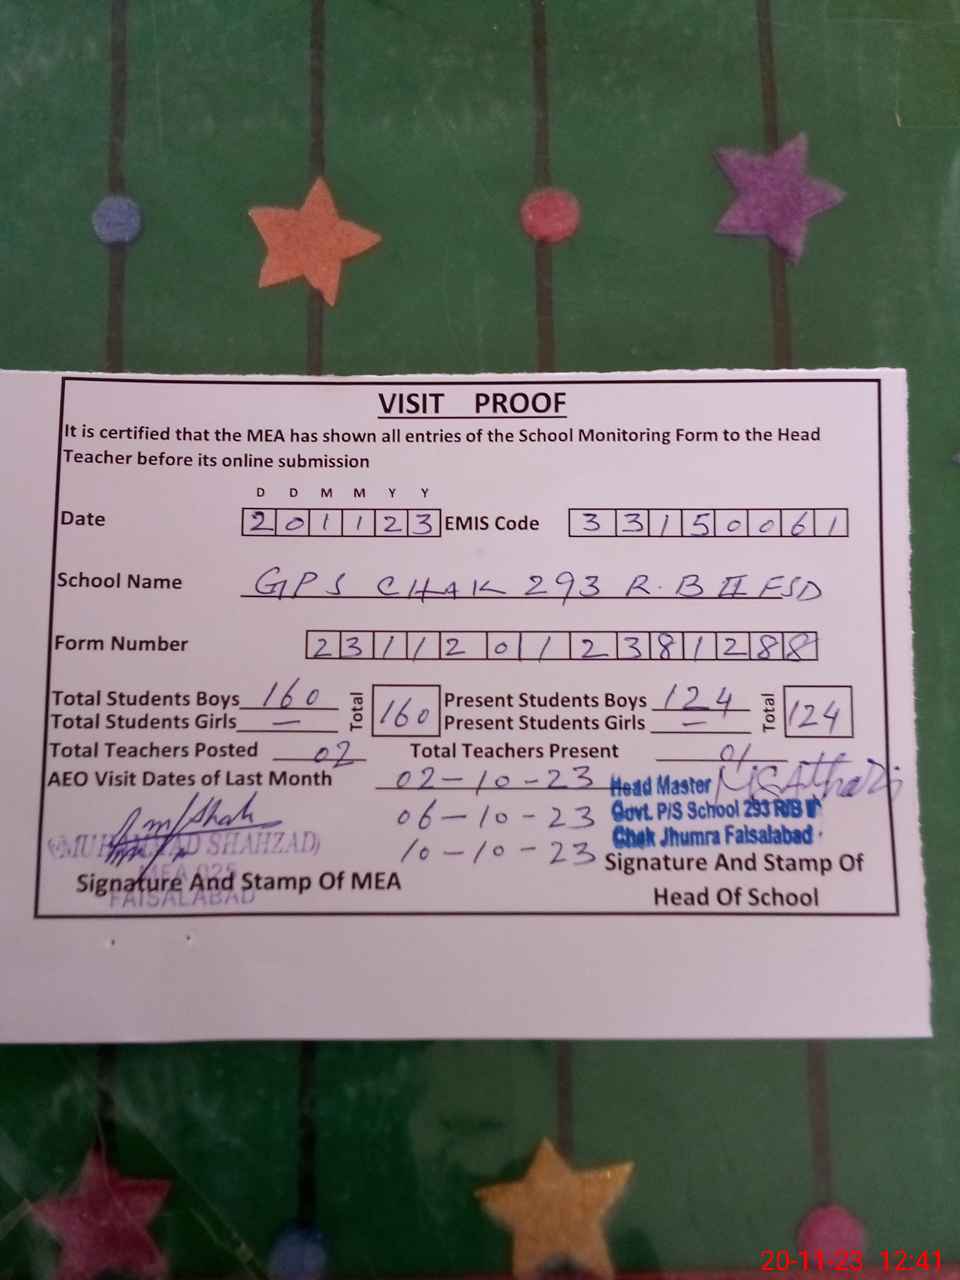 VISIT PROOF
It is certified that the MEA has shown all entries of the School Monitoring Form to the Head
Teacher before its online submission
D D M M Y Y
Date 2 0 1 1 2 3 EMIS Code 3 3 1 5 0 0 6 1
School Name GPS CHAK 293 R.B II FSD
Form Number 2 3 1 1 2 0 1 2 3 8 1 2 8 8
Total Students Boys 160 Total 160 Present Students Boys 124 Total 124
Total Students Girls — Present Students Girls —
Total Teachers Posted 02 Total Teachers Present 01
AEO Visit Dates of Last Month 02-10-23
06-10-23
10-10-23
Head Master
Govt. P/S School 293 R/B II
Chak Jhumra Faisalabad
(MUHAMMAD SHAHZAD)
MEA 025
FAISALABAD
Signature And Stamp Of MEA
Signature And Stamp Of
Head Of School
20-11-23 12:41